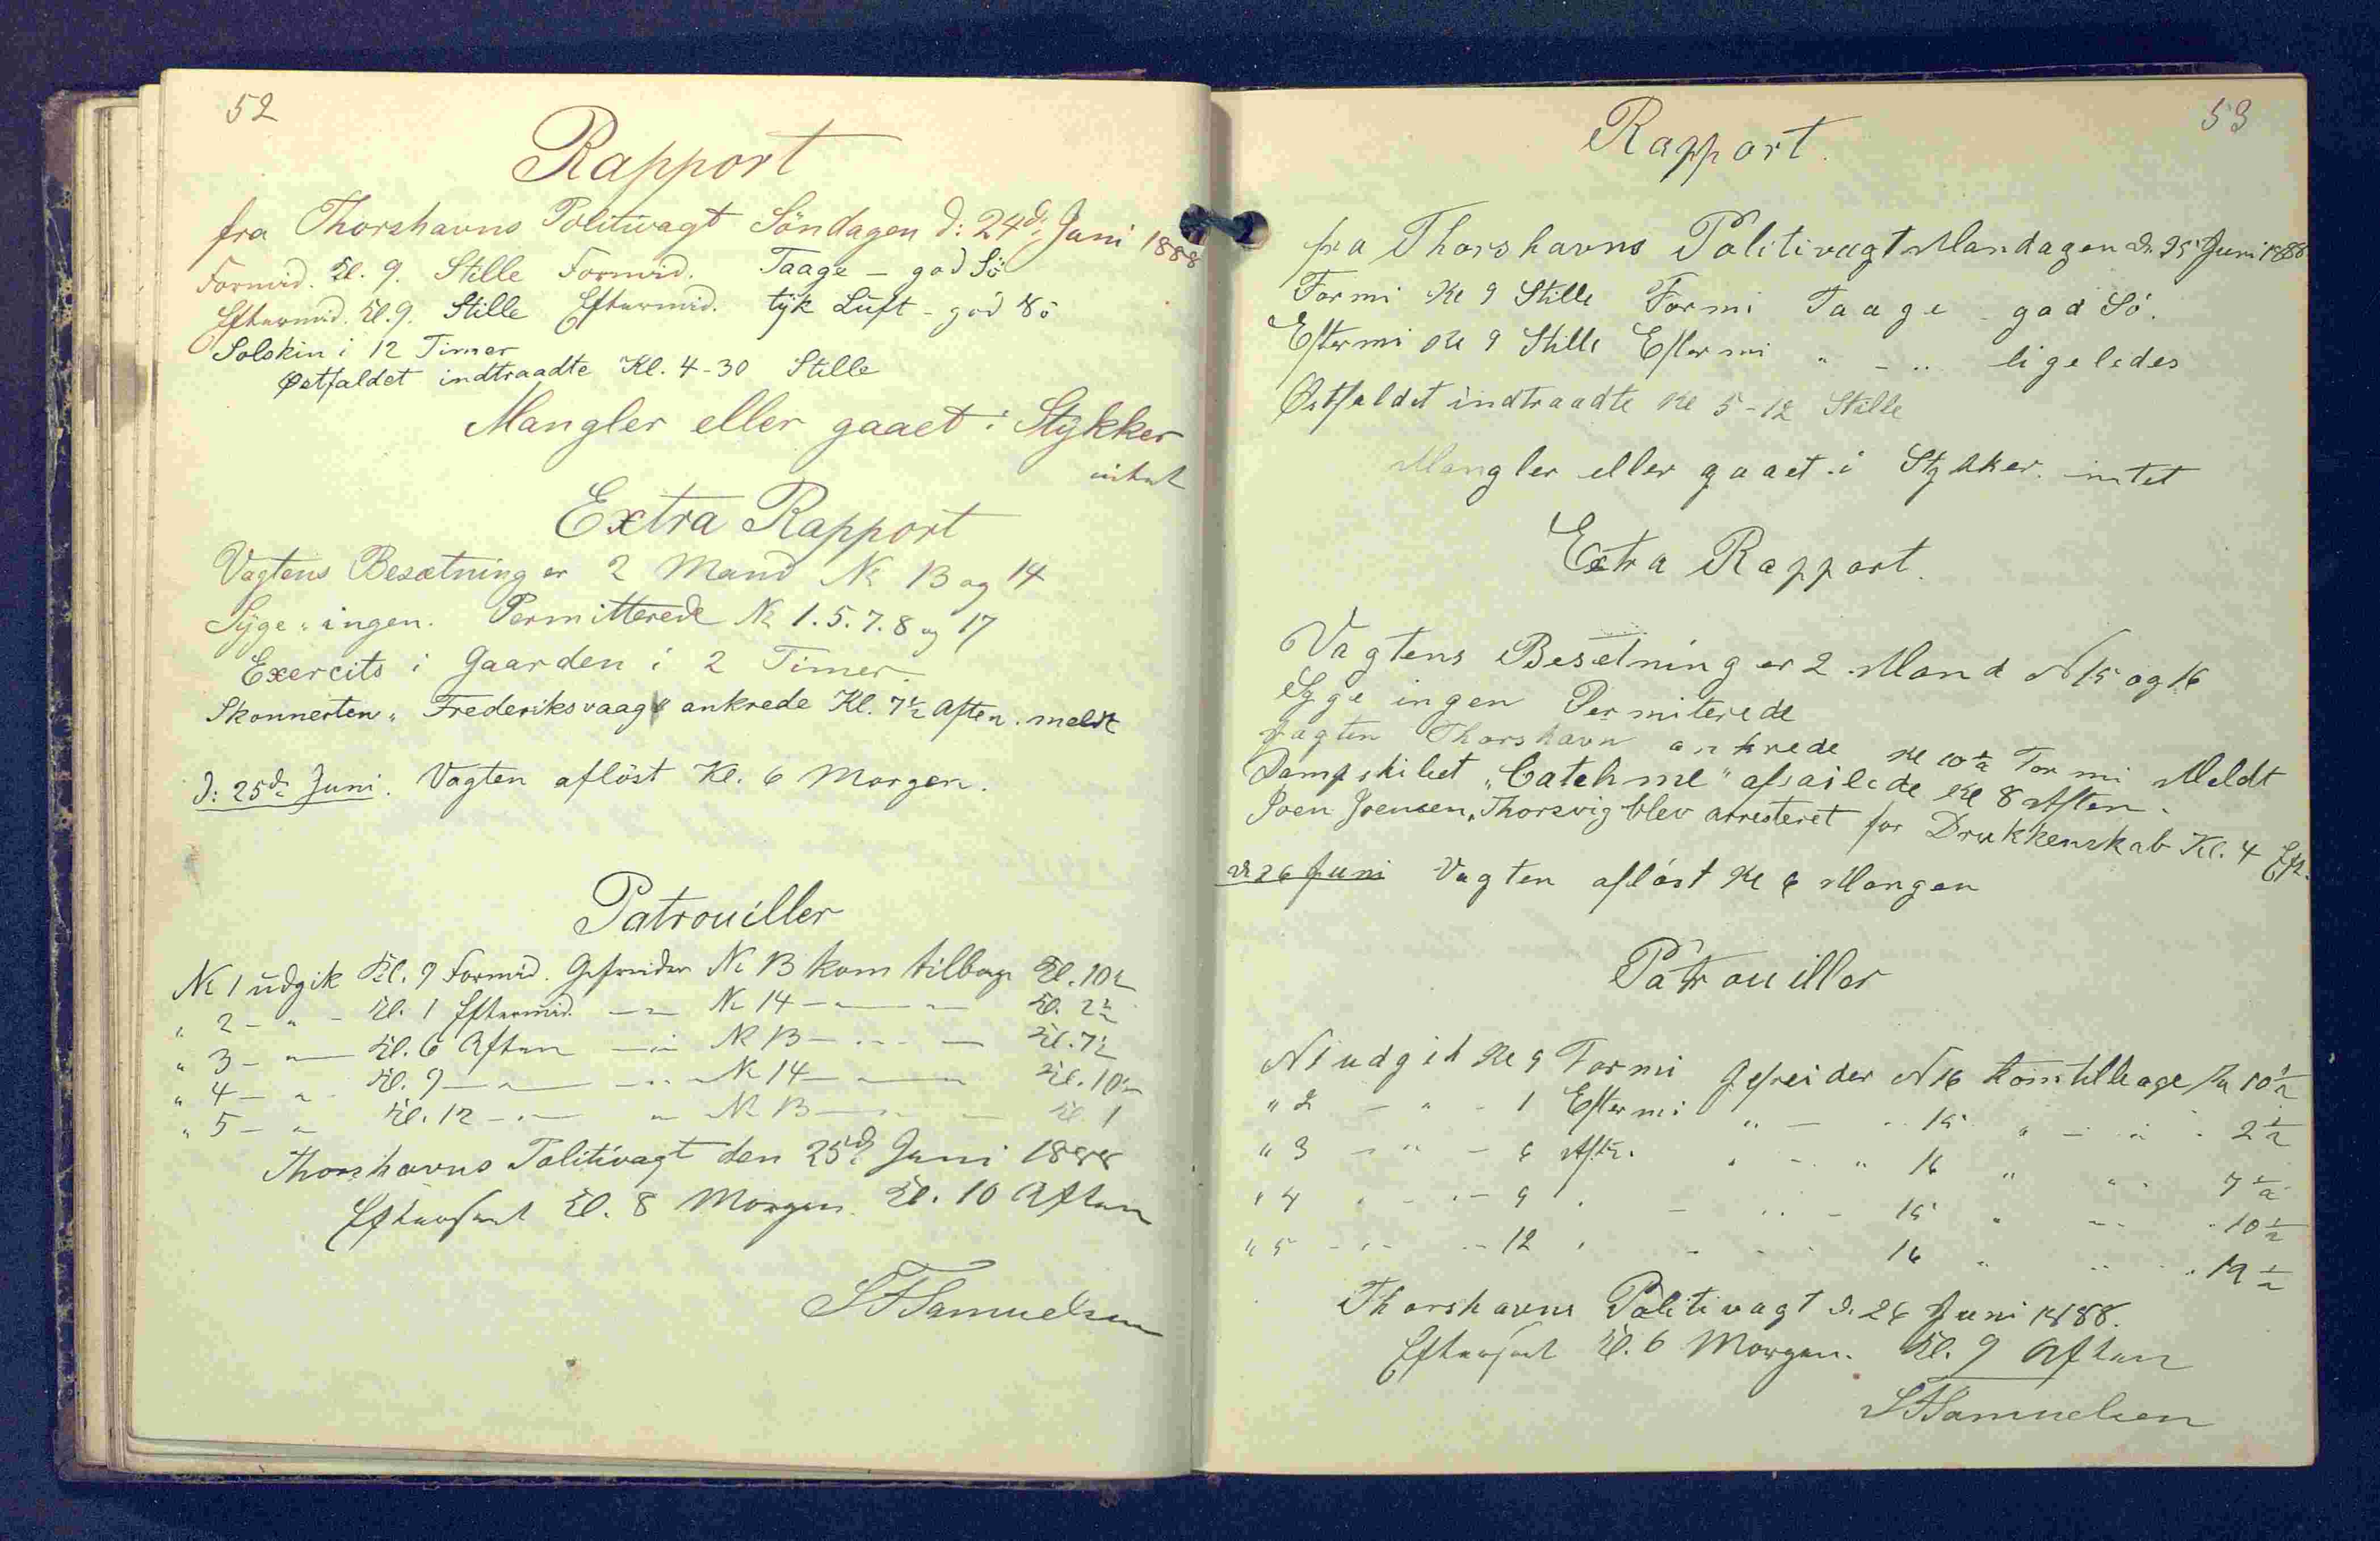 52
Rapport
fra Thorshavns Politivagt Söndagen d: 24de Juni 1888
Formid. Kl. 9. Stille Formid. Taage - god Sö
Eftermid. Kl. 9. Stille Eftermid. tyk Luft - god Sö
Solskin i 12 Timer
Østfaldet indtraadte Kl. 4-30 Stille
Mangler eller gaaet i Stykker
intet
Extra Rapport
Vagtens Besætning er 2 Mand No 13 og 14
Syge ingen. Permitterede No 1. 5. 7. 8 og 17
Exercits i Gaarden i 2 Timer.
Skonnerten „Frederiksvaag“ ankrede Kl. 7½ Aften. meldt
d: 25de Juni. Vagten aflöst Kl. 6 Morgen.
Patrouiller
No 1 udgik Kl. 9 Formid. Gefreider No 13 kom tilbage Kl. 10½
" 2 - " - Kl. 1 Eftermid. - " - No 14 - " - " - Kl. 2½
" 3 - " - Kl. 6 Aften - " - No 13 - " - " - Kl. 7½
" 4 - " - Kl. 9 - " - - " - No 14 - " - " - Kl. 10½
" 5 - " - Kl. 12 - " - " - No 13 - " - " - Kl. 1
Thorshavns Politivagt den 25de Juni 1888
Efterseet Kl. 8 Morgen. Kl. 10 Aften
Samuelsen
53
Rapport.
fra Thorshavns Politivagt Mandagen d. 25 Juni 1888
Formi Kl 9 Stille Formi Taage god Sö.
Eftermi Kl 9 Stille Eftermi " - " ligeledes
Østfaldet indtraadte Kl 5-12 Stille
Mangler eller gaaet i Stykker. intet
Extra Rapport.
Vagtens Besætning er 2 Mand N 15 og 16
Syge ingen Permiterede
Jagten Thorshavn ankrede Kl 10½ Formi Meldt
Dampskibet „Catch me“ afsailede Kl 8 Aften.
Joen Joensen, Thorsvig blev arresteret for Drukkenskab Kl. 4 Eft.
d 26 Juni Vagten aflöst Kl 6 Morgen
Patrouiller
N 1 udgik Kl 9 Formi Gefreider N 16 kom tilbage Kl 10½
" 2 - " - 1 Eftermi " - " 15 " - " - 2½
" 3 - " - 6 Aft. " - " 16 " " " 7½
" 4 " - " - 9 " - " - 15 " - " - 10½
" 5 - " - - 12 " - " - 16 " " " ½
Thorshavns Politivagt d. 26 Juni 1888.
Efterseet Kl. 6 Morgen. Kl. 9 Aften
Samuelsen